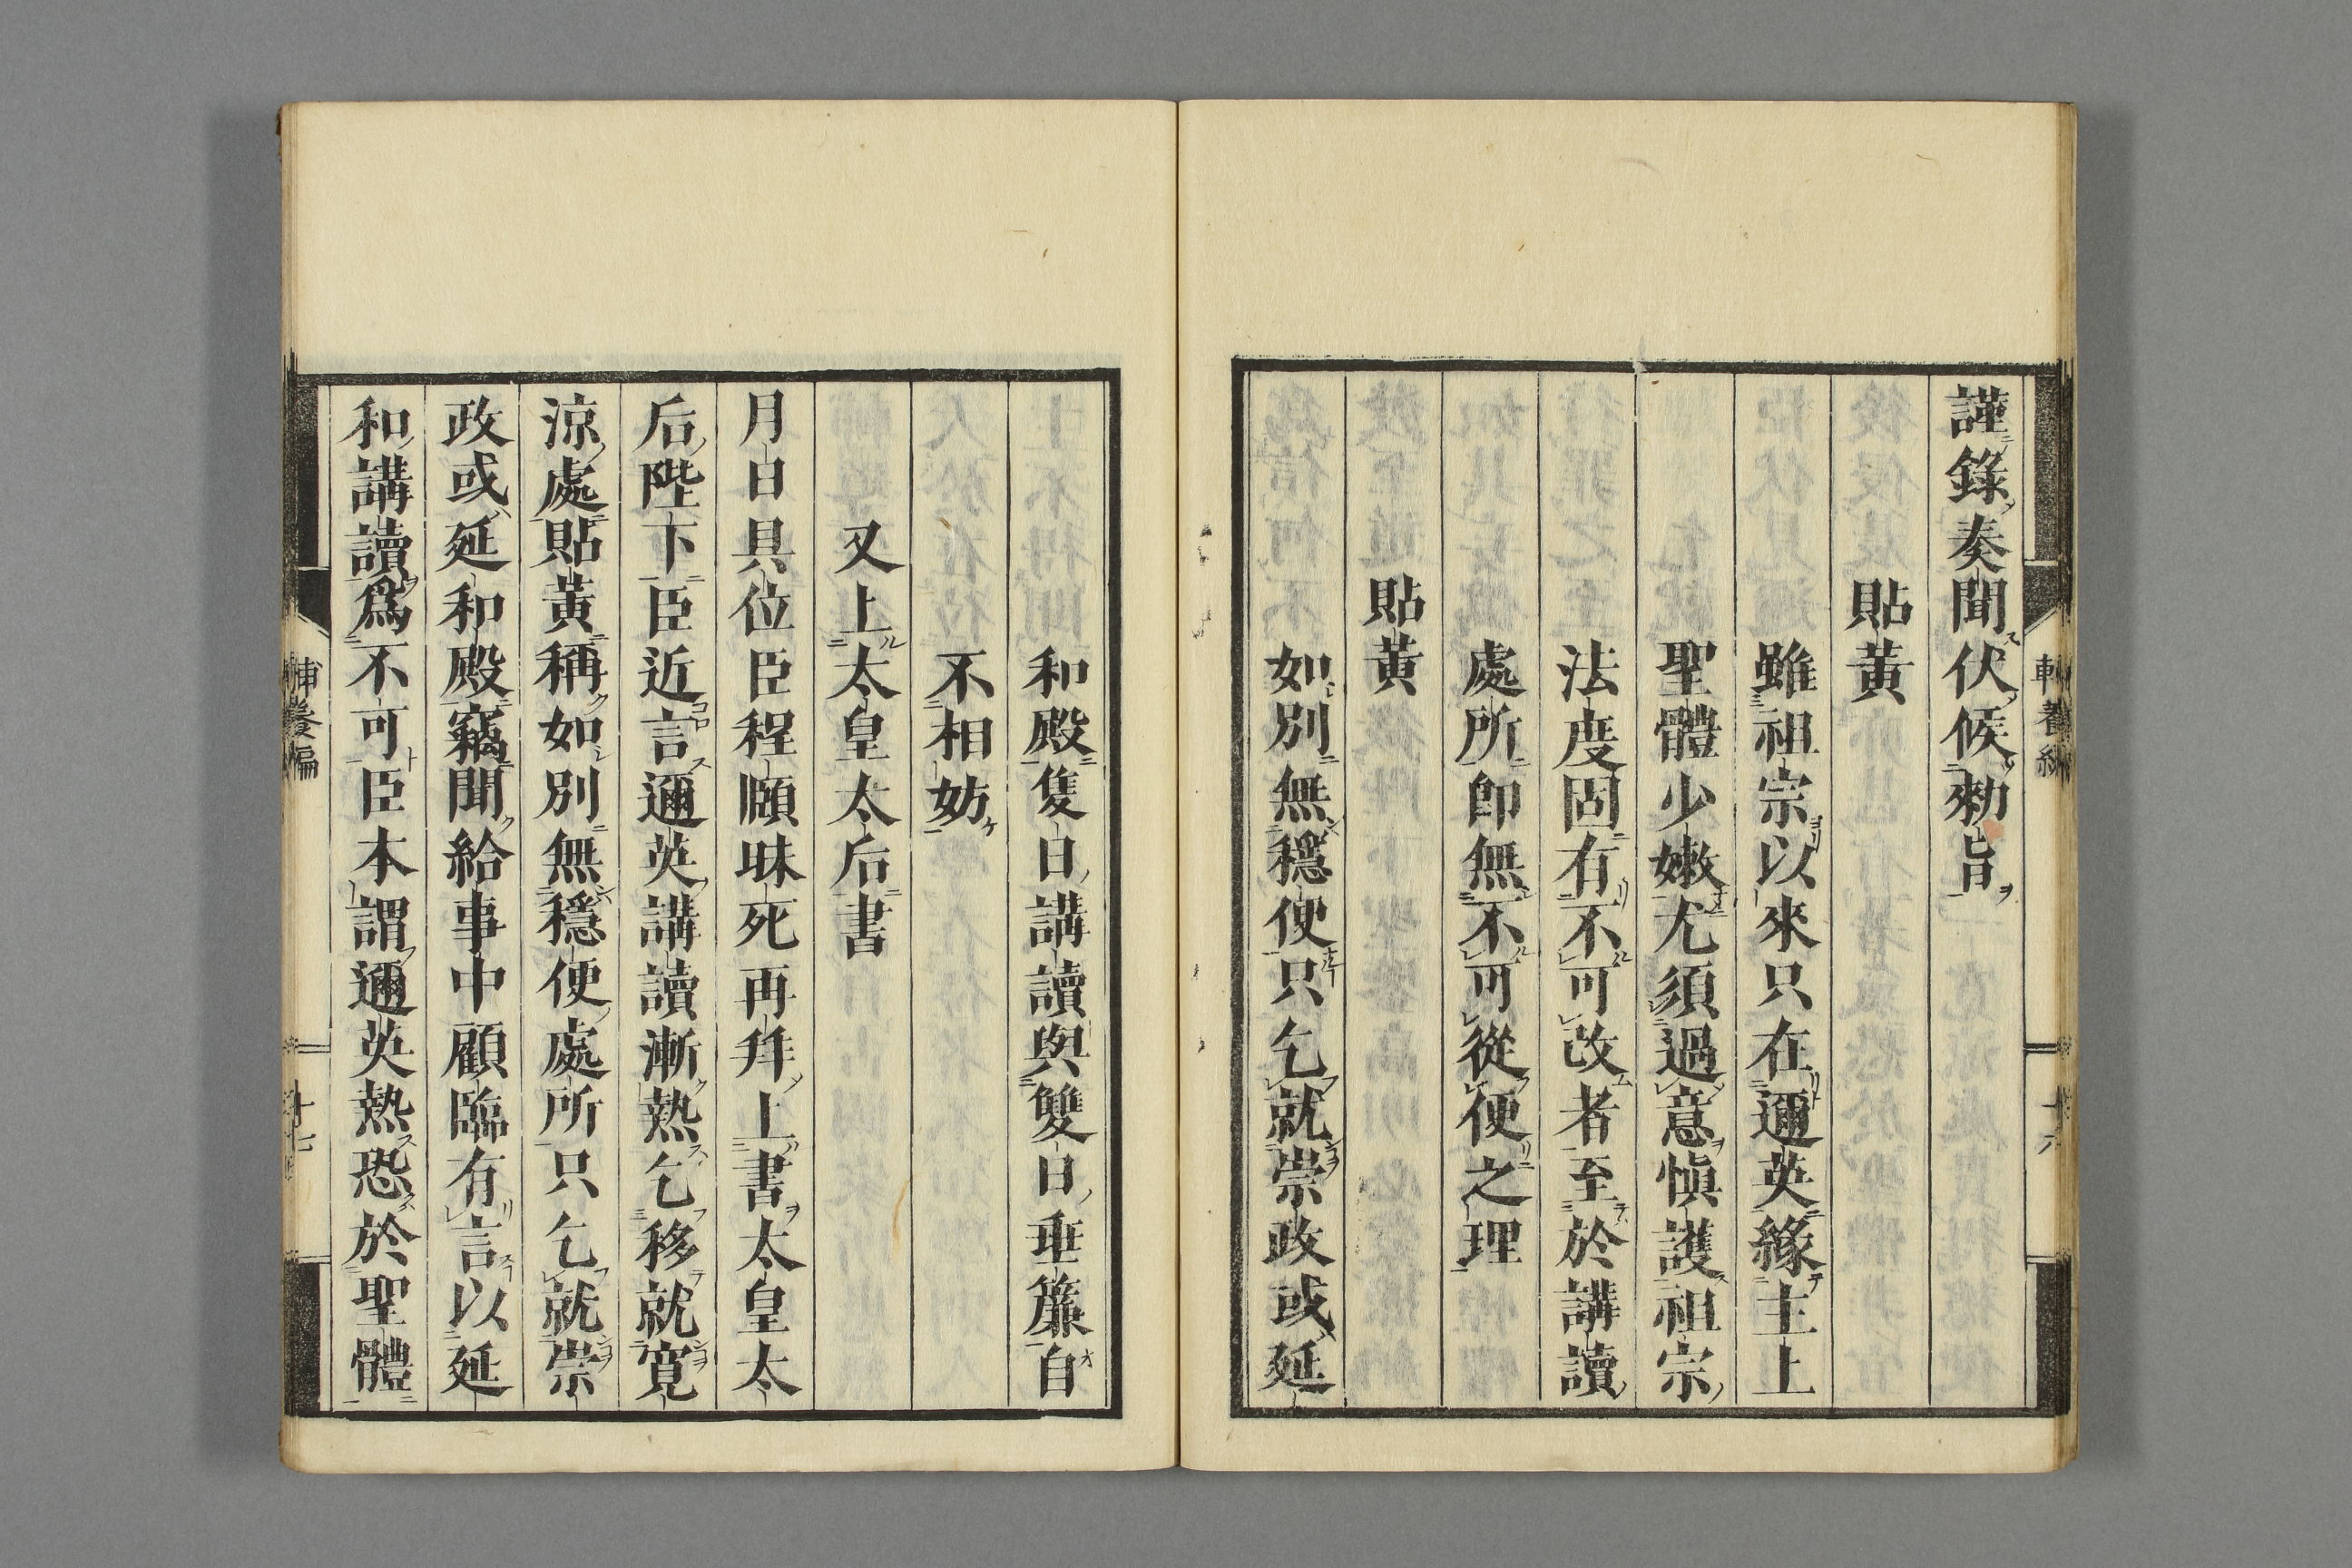 謹錄奏聞伏候勅旨
貼黄
雖祖宗以來只在邇英緣主上
聖體少嫩尤須過意愼護祖宗
法度固有不可改者至於講讀
處所即無不可從便之理
貼黄
如別無穩便只乞就崇政或延
和殿隻日講讀與雙日垂簾自
不相妨
又上太皇太后書
月日具位臣程頤昧死再拜上書太皇太
后陛下臣近言邇英講讀漸熱乞移就寛
涼處貼黄稱如別無穩便處所只乞就崇
政或延和殿竊聞給事中顧臨有言以延
和講讀爲不可臣本謂邇英熱恐於聖體
輔養編
十七